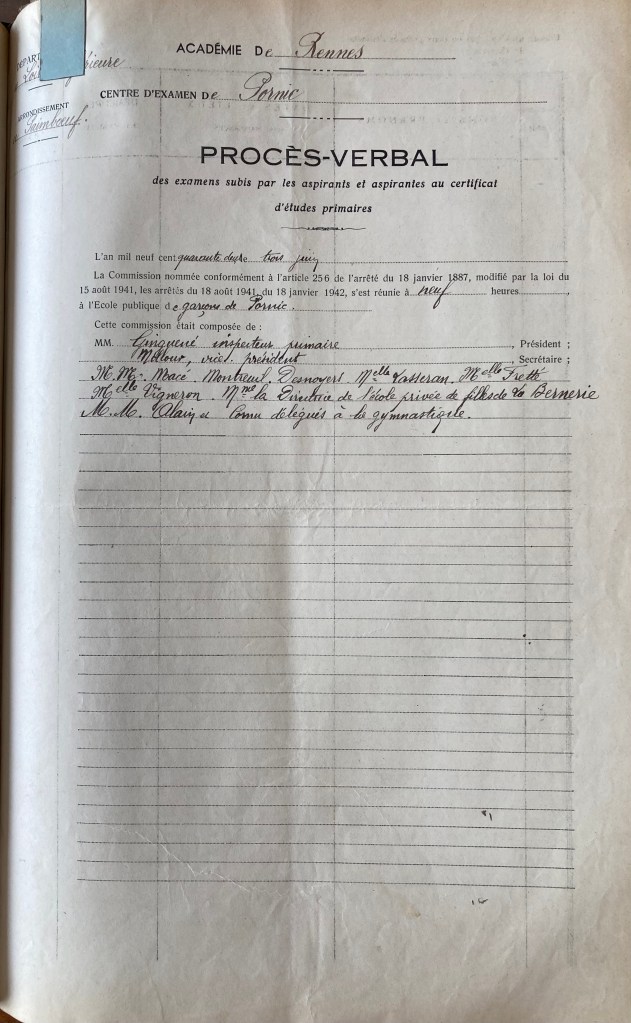 ACADÉMIE De Rennes
DÉPART
Loi érieure
CENTRE D'EXAMEN De Pornic
ARRONDISSEMENT
Paimbœuf.
PROCÈS-VERBAL
des examens subis par les aspirants et aspirantes au certificat
d'études primaires
L'an mil neuf cent quarante deux le trois juin
La Commission nommée conformément à l'article 256 de l'arrêté du 18 janvier 1887, modifié par la loi du
15 août 1941, les arrêtés du 18 août 1941, du 18 janvier 1942, s'est réunie à neuf heures
à l'Ecole publique de garçons de Pornic.
Cette commission était composée de :
MM. inspecteur primaire , Président ;
vice président , Secrétaire ;
M. M. Macé Montreuil Desnoyers Melle Lasseran, Melle
Melle Vigneron Mme la Directrice de l'école privée de filles de La Bernerie
M. M. Alain et Cornu délégués à la gymnastique.